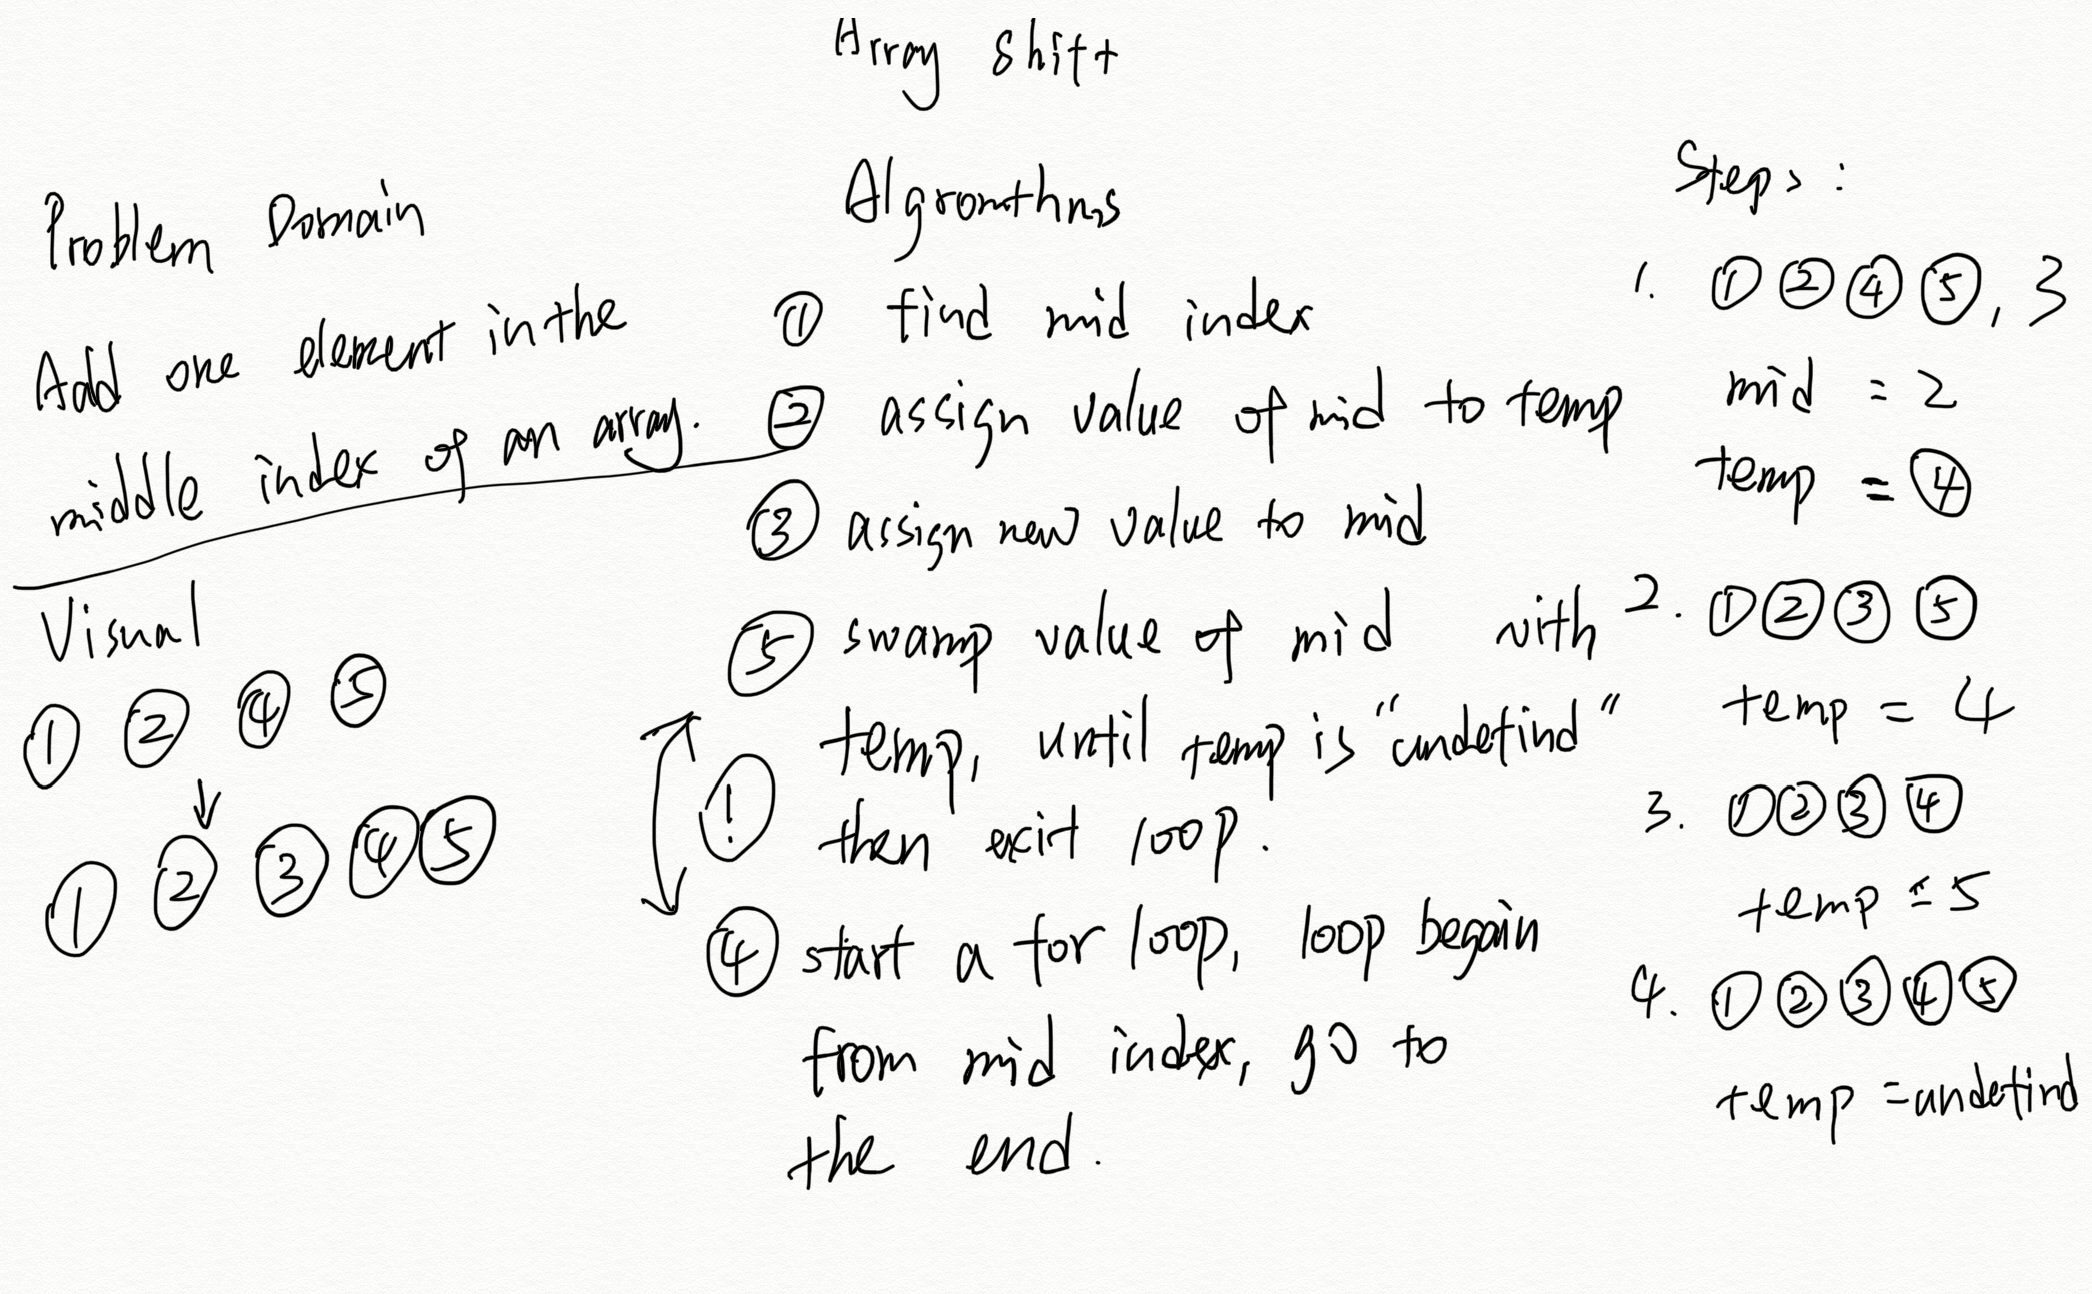 Array Shift
Problem Domain
Add one element in the
middle index of an array.
Visual
① ② ④ ⑤
↓
① ② ③ ④ ⑤
Algromthms
① find mid index
② assign value of mid to temp
③ assign new value to mid
⑤ swamp value of mid with
temp, until temp is "undefind"
! then exit loop.
④ start a for loop, loop begain
from mid index, go to
the end.
Steps:
1. ① ② ④ ⑤, 3
mid = 2
temp = ④
2. ① ② ③ ⑤
temp = 4
3. ① ② ③ ④
temp = 5
4. ① ② ③ ④ ⑤
temp = undefind